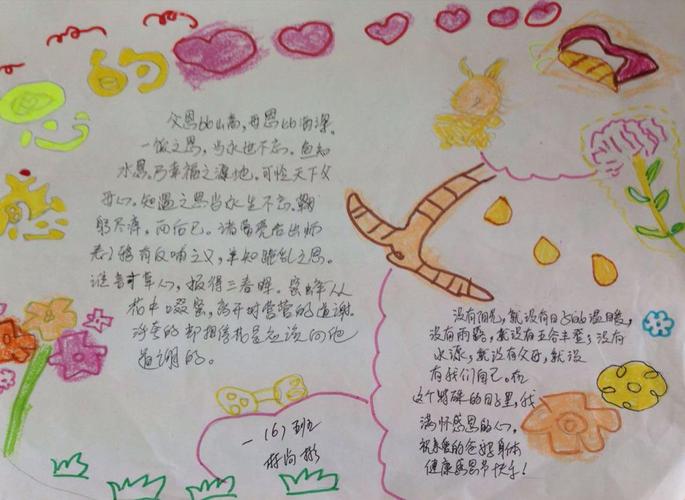 感恩的心
父恩比山高，母恩比海深。
一饭之恩，当永世不忘。鱼知
水恩，乃幸福之源地。可怜天下父
母心。知遇之恩当永生不忘。鞠
躬尽瘁，而后已。诸葛亮后出师
表，鸦有反哺之义，羊知跪乳之恩。
谁言寸草心，报得三春晖。蜜蜂从
花中啜蜜，离开时营营的道谢。
浮夸的却相信花是应该向他
道谢的。
一（6）班
没有阳光，就没有日子的温暖，
没有雨露，就没有五谷丰登；没有
水源，就没有父母，就没
有我们自己。在
这个特殊的日子里，我
满怀感恩的心，
祝亲爱的爸妈身体
健康感恩节快乐！